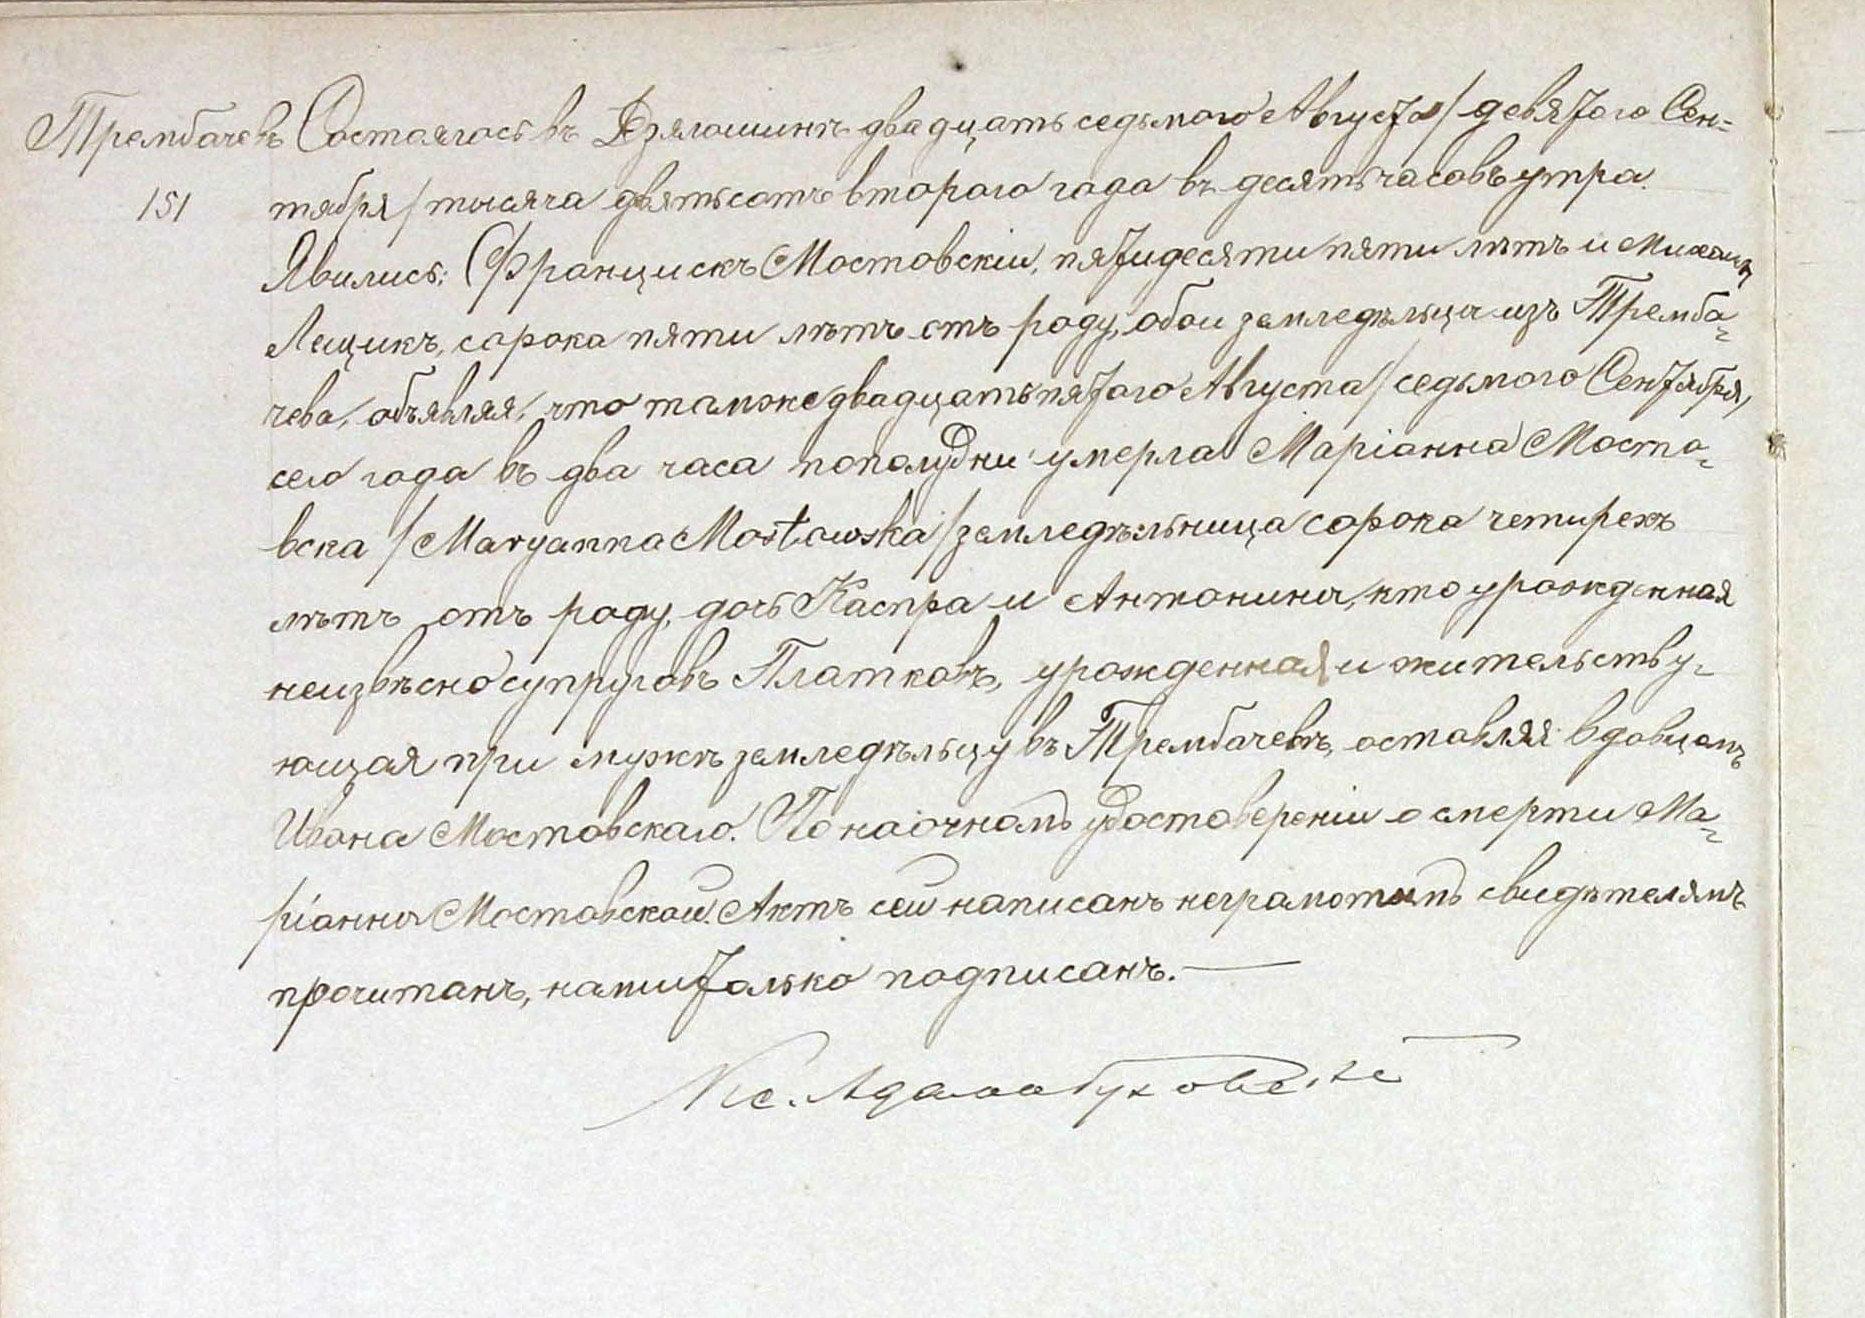 Трембачевъ Состоялось въ Дзялошинѣ двадцать седьмого Августа / девятого Сен=
151 тября / тысяча двятьсотъ второго года въ десять часовъ утра.
Явились: Францискъ Мостовскiй, пятидесяти пяти лѣтъ и Михаилъ
Лещикъ, сорока пяти лѣтъ отъ роду, обои земледѣльцы изъ Тремба=
чева, объявляя, что тамже двадцать пятого Августа / седьмого Сентября,
сего года въ два часа пополудни умерла Марiанна Мосто=
вска / Maryanna Mostowska / земледѣльница сорока четирехъ
лѣтъ отъ роду, дочь Каспра и Антонины, кто урожденная
неизвѣсно супруговъ Платковъ, урожденная и жительству=
ющая при мужѣ земледѣльцу въ Трембачевѣ, оставляя вдовцомъ
Ивана Мостовскаго. По наочномъ удостоверенiи о смерти Ма=
рiанны Мостовской. Актъ сей написанъ неграмотымъ свидѣтелямъ
прочитанъ, нами только подписанъ. —
Кс.